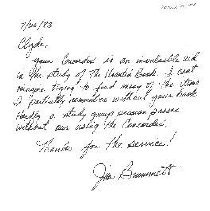 7/26/83
Clyde,
Your Concordex is an invaluable aid
in the study of The Urantia Book. I can't
imagine trying to find many of the items
I partially remember without your book.
Hardly a study group session passes
without our using the Concordex.
Thanks for the service!
Jim